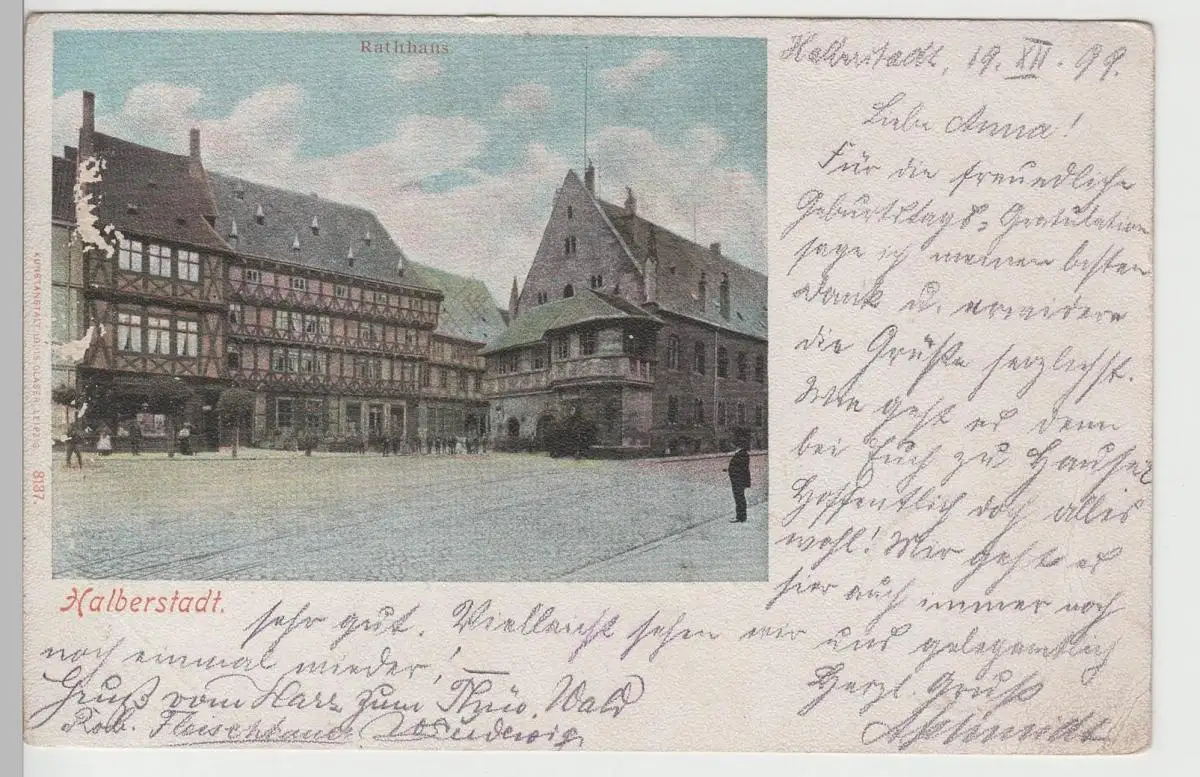 Rathhaus
Halberstadt, 19. XII. 99.
Liebe Anna!
Für die freundliche
Geburtstags-Gratulation
sage ich meinen besten
Dank u. erwidere
die Grüße herzlichst.
Wie geht es denn
bei Euch zu Hause?
Hoffentlich doch alles
wohl! Mir geht es
hier auch immer noch
sehr gut. Vielleicht sehen wir uns gelegentlich
noch einmal wieder!
Herzl. Gruß
A. Schmidt
Gruß vom Harz zum Thür. Wald
Rob. Fleischhauer
Halberstadt.
KUNSTANSTALT LOUIS GLASER, LEIPZIG. 8187.